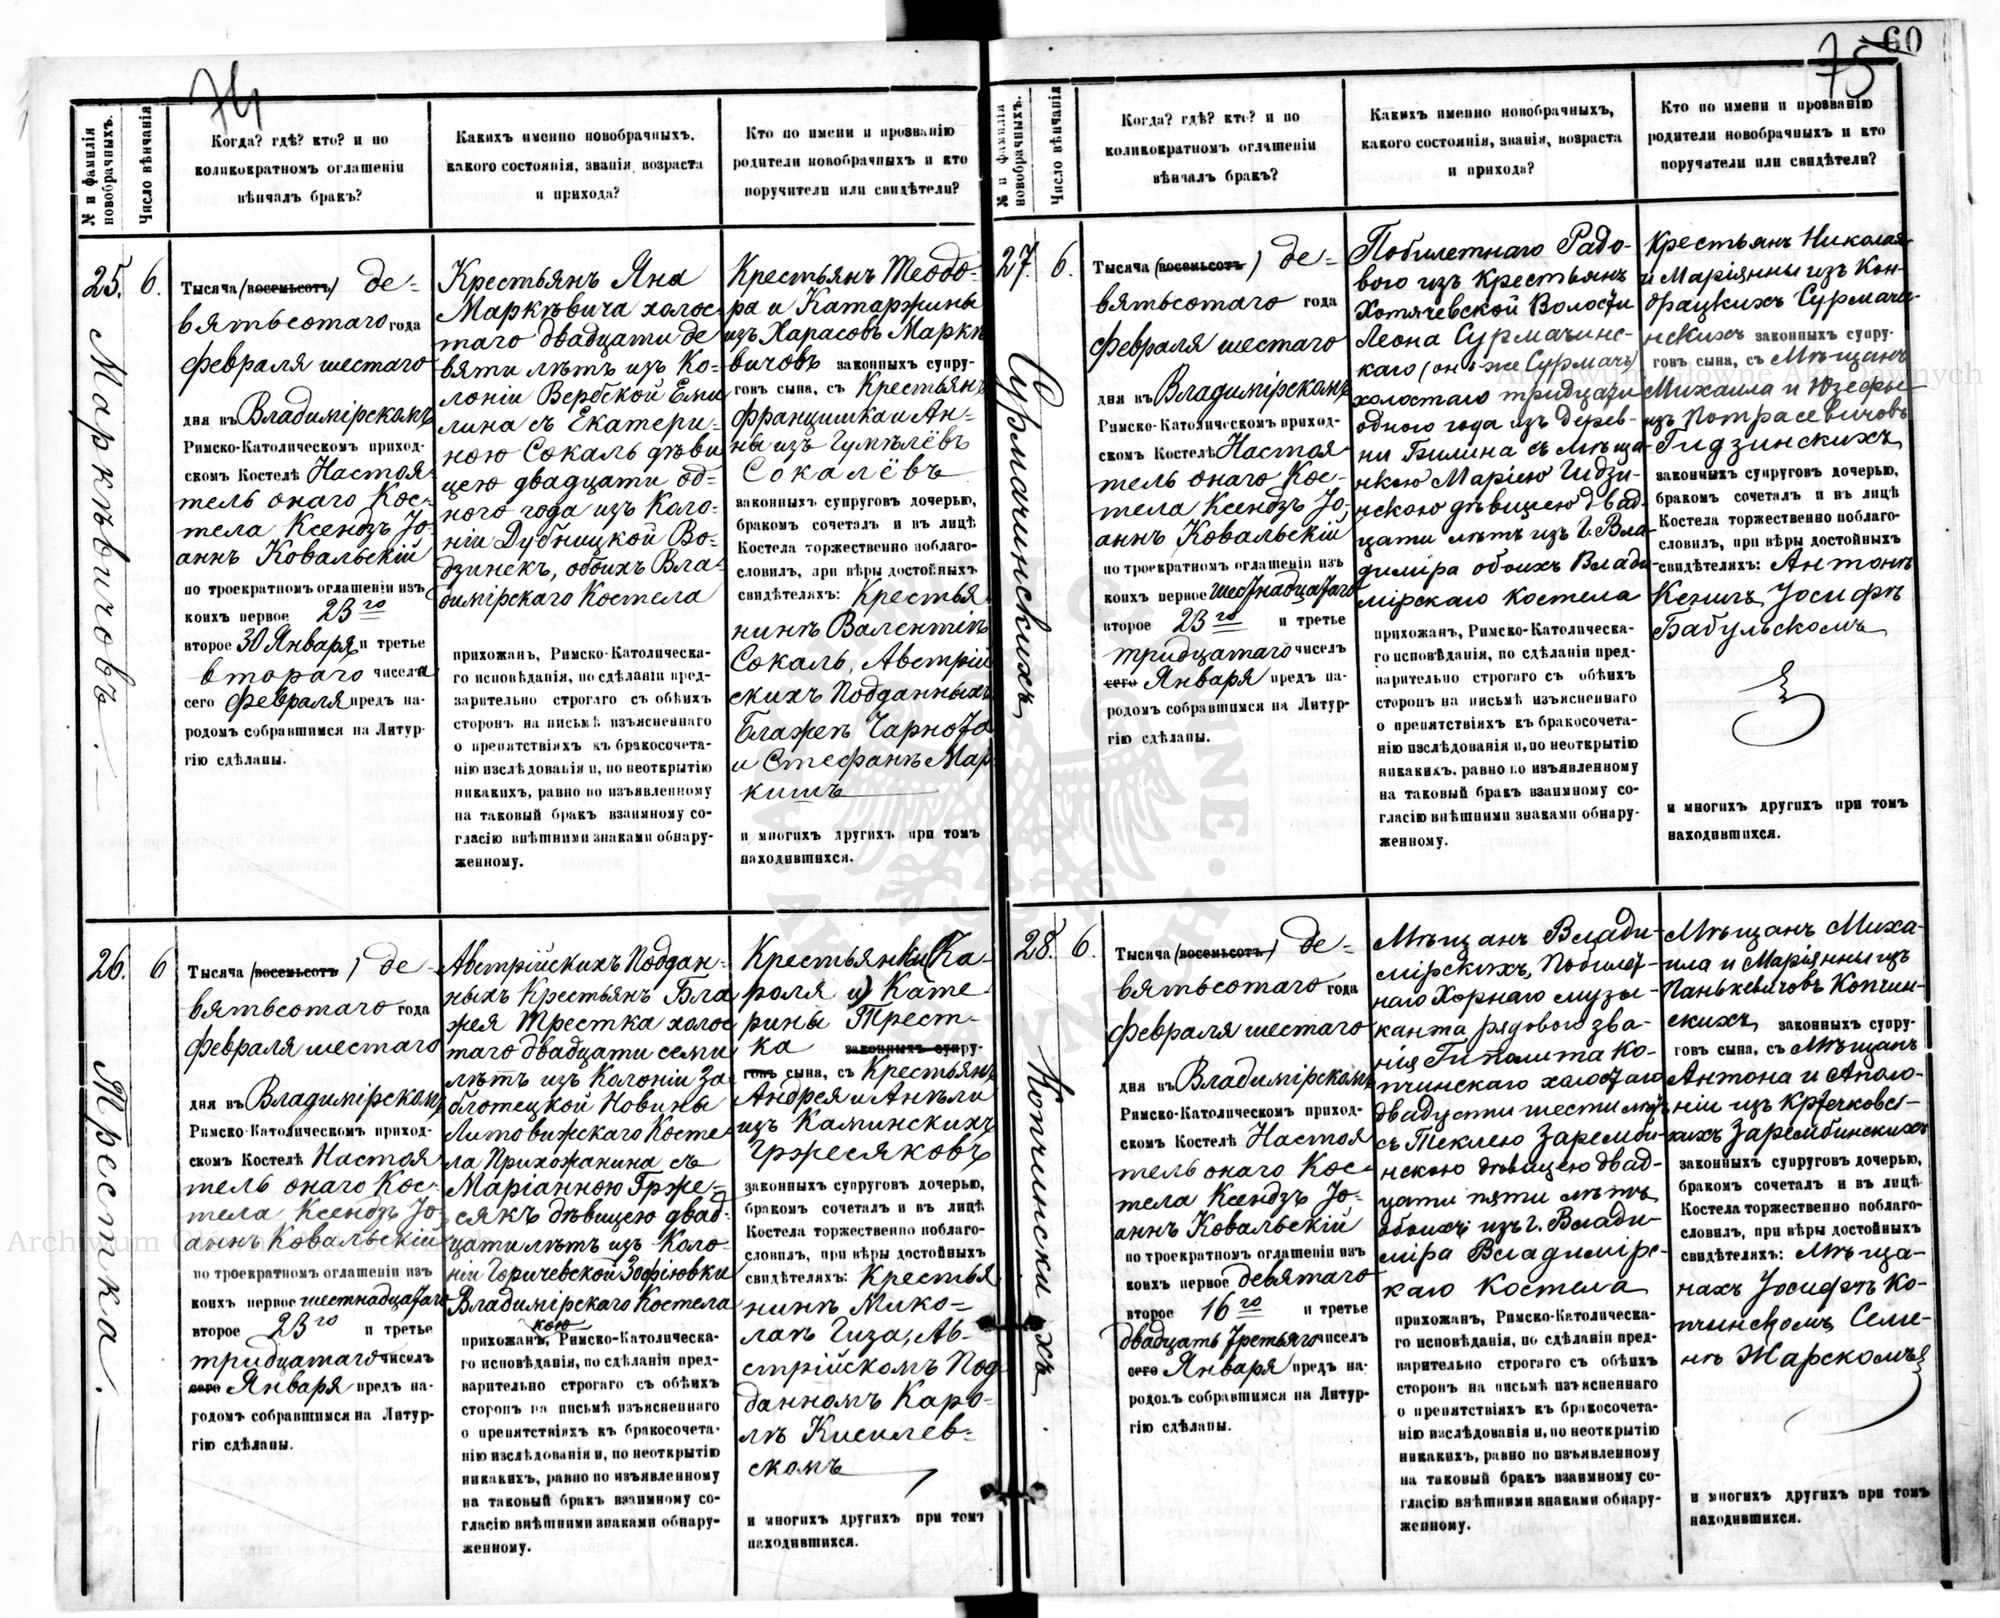 74
60
75
№ и фамилія новобрачныхъ.
Число вѣнчанія
Когда? гдѣ? кто? и по
коликократномъ оглашеніи
вѣнчалъ бракъ?
Какихъ именно новобрачныхъ,
какого состоянія, званія, возраста
и прихода?
Кто по имени и прозванію
родители новобрачныхъ и кто
поручители или свидѣтели?
25.
6.
Маркѣвичовъ.
Тысяча (восемьсотъ) де-
вятьсотаго года
февраля шестаго
дня въ Владимірскомъ
Римско-Католическомъ приход-
скомъ Костелѣ Настоя
тель онаго Кос-
тела Ксендзъ Іо-
аннъ Ковальскій
по троекратномъ оглашеніи изъ
коихъ первое 23го
второе 30 Января и третье
втораго числа
сего февраля предъ на-
родомъ собравшимся на Литур-
гію сдѣланы.
Крестьянъ Яна
Маркѣвича холос
таго двадцати де
вяти лѣтъ изъ Ко-
лоніи Вербской Еми
лина съ Екатери-
ною Сокаль дѣви
цею двадцати од-
ного года изъ Коло-
ніи Дубницкой Во-
дзинекъ, обоихъ Вла-
димірскаго Костела
прихожанъ, Римско-Католическа-
го исповѣданія, по сдѣланіи пред-
варительно строгаго съ обѣихъ
сторонъ на письмѣ изъясненнаго
о препятствіяхъ къ бракосочета-
нію изслѣдованія и, по неоткрытію
никакихъ, равно по изъявленному
на таковый бракъ взаимному со-
гласію внѣшними знаками обнару-
женному.
Крестьянъ Теодо-
ра и Катаржины
изъ Харасовъ Маркѣ
вичовъ законныхъ супру-
говъ сына, съ Крестьянъ
Францишка и Ан-
ны изъ Гумѣлёвъ
Сокалёвъ
законныхъ супруговъ дочерью,
бракомъ сочеталъ и въ лицѣ
Костела торжественно поблаго-
словилъ, при вѣры достойныхъ
свидѣтеляхъ: Крестья
нинѣ Валентіѣ
Сокаль, Австрій
скихъ Подданныхъ
Блажеѣ Чарнота
и Стефанѣ Мар
кишъ
и многихъ другихъ при томъ
находившихся.
26.
6
Трестка.
Тысяча (восемьсотъ) де-
вятьсотаго года
февраля шестаго
дня въ Владимірскомъ
Римско-Католическомъ приход-
скомъ Костелѣ Настоя
тель онаго Кос-
тела Ксендзъ Іо-
аннъ Ковальскій
по троекратномъ оглашеніи изъ
коихъ первое шестнадцатаго
второе 23го и третье
тридцатаго чиселъ
сего Января предъ на-
родомъ собравшимся на Литур-
гію сдѣланы.
Австрійскихъ Поддан-
ныхъ Крестьянъ Бла
жея Трестка холос
таго двадцати семи
лѣтъ изъ Колоніи За
блотецкой Новины
Литовижскаго Косте-
ла Прихожанина съ
Маріанною Грже-
сякъ дѣвицею двад-
цати лѣтъ изъ Коло-
ніи Горичевской Зофіювки
Владимірскаго Костела
кою
прихожанъ, Римско-Католическа-
го исповѣданія, по сдѣланіи пред-
варительно строгаго съ обѣихъ
сторонъ на письмѣ изъясненнаго
о препятствіяхъ къ бракосочета-
нію изслѣдованія и, по неоткрытію
никакихъ, равно по изъявленному
на таковый бракъ взаимному со-
гласію внѣшними знаками обнару-
женному.
Крестьянки (Ка-
роля и) Кате-
рины Трест-
ка законныхъ супру-
говъ сына, съ Крестьянъ
Андрея и Анѣли
изъ Каминскихъ
Гржесяковъ
законныхъ супруговъ дочерью,
бракомъ сочеталъ и въ лицѣ
Костела торжественно поблаго-
словилъ, при вѣры достойныхъ
свидѣтеляхъ: Крестья
нинѣ Мико-
лаѣ Гиза, Ав-
стрійскомъ Под
данномъ Каро-
лѣ Кисилев-
скомъ
и многихъ другихъ при томъ
находившихся.
№ и фамилія новобрачныхъ.
Число вѣнчанія
Когда? гдѣ? кто? и по
коликократномъ оглашеніи
вѣнчалъ бракъ?
Какихъ именно новобрачныхъ,
какого состоянія, званія, возраста
и прихода?
Кто по имени и прозванію
родители новобрачныхъ и кто
поручители или свидѣтели?
27.
6.
Сурмачинскихъ
Тысяча (восемьсотъ) де-
вятьсотаго года
февраля шестаго
дня въ Владимірскомъ
Римско-Католическомъ приход-
скомъ Костелѣ Настоя
тель онаго Кос-
тела Ксендзъ Іо-
аннъ Ковальскій
по троекратномъ оглашеніи изъ
коихъ первое шестнадцатаго
второе 23го и третье
тридцатаго чиселъ
сего Января предъ на-
родомъ собравшимся на Литур-
гію сдѣланы.
Побилетнаго Рядо-
вого изъ Крестьянъ
Хотячевской Волости
Леона Сурмачинс-
каго (онъ же Сурмачъ)
холостаго тридцати
одного года изъ Дерев-
ни Билина съ Мѣща-
нкою Маріею Гидзи-
нскою дѣвицею двад-
цати лѣтъ изъ г. Вла-
димира обоихъ Влади
мірскаго костела
прихожанъ, Римско-Католическа-
го исповѣданія, по сдѣланіи пред-
варительно строгаго съ обѣихъ
сторонъ на письмѣ изъясненнаго
о препятствіяхъ къ бракосочета-
нію изслѣдованія и, по неоткрытію
никакихъ, равно по изъявленному
на таковый бракъ взаимному со-
гласію внѣшними знаками обнару-
женному.
Крестьянъ Николая
и Маріянны изъ Кон-
драцкихъ Сурмачи-
нскихъ законныхъ супру-
говъ сына, съ Мѣщанъ
Михаила и Юзефы
изъ Потрасевичовъ
Гидзинскихъ
законныхъ супруговъ дочерью,
бракомъ сочеталъ и въ лицѣ
Костела торжественно поблаго-
словилъ, при вѣры достойныхъ
свидѣтеляхъ: Антонѣ
Кенигъ, Іосифѣ
Бабульскомъ
и многихъ другихъ при томъ
находившихся.
28.
6.
Копчинскихъ.
Тысяча (восемьсотъ) де-
вятьсотаго года
февраля шестаго
дня въ Владимірскомъ
Римско-Католическомъ приход-
скомъ Костелѣ Настоя
тель онаго Кос-
тела Ксендзъ Іо-
аннъ Ковальскій
по троекратномъ оглашеніи изъ
коихъ первое девятаго
второе 16го и третье
двадцать третьяго чиселъ
сего Января предъ на-
родомъ собравшимся на Литур-
гію сдѣланы.
Мѣщанъ Влади-
мірскихъ, Побилет-
наго Хорнаго музы-
канта рядового зва-
нія Гиполита Ко-
пчинскаго холостаго
двадцати шести лѣтъ
съ Теклею Зарембі-
нскою дѣвицею двад-
цати пяти лѣтъ
обоихъ изъ г. Влади-
міра Владимірс-
каго Костела
прихожанъ, Римско-Католическа-
го исповѣданія, по сдѣланіи пред-
варительно строгаго съ обѣихъ
сторонъ на письмѣ изъясненнаго
о препятствіяхъ къ бракосочета-
нію изслѣдованія и, по неоткрытію
никакихъ, равно по изъявленному
на таковый бракъ взаимному со-
гласію внѣшними знаками обнару-
женному.
Мѣщанъ Миха-
ила и Маріянны изъ
Панькевичовъ Копчин-
скихъ законныхъ супру-
говъ сына, съ Мѣщанъ
Антона и Аполо-
ніи изъ
Зарембинскихъ
законныхъ супруговъ дочерью,
бракомъ сочеталъ и въ лицѣ
Костела торжественно поблаго-
словилъ, при вѣры достойныхъ
свидѣтеляхъ: Мѣща-
нахъ Іосифѣ Ко-
пчинскомъ, Семе-
нѣ Жарскомъ
и многихъ другихъ при томъ
находившихся.
Archiwum Główne Akt Dawnych